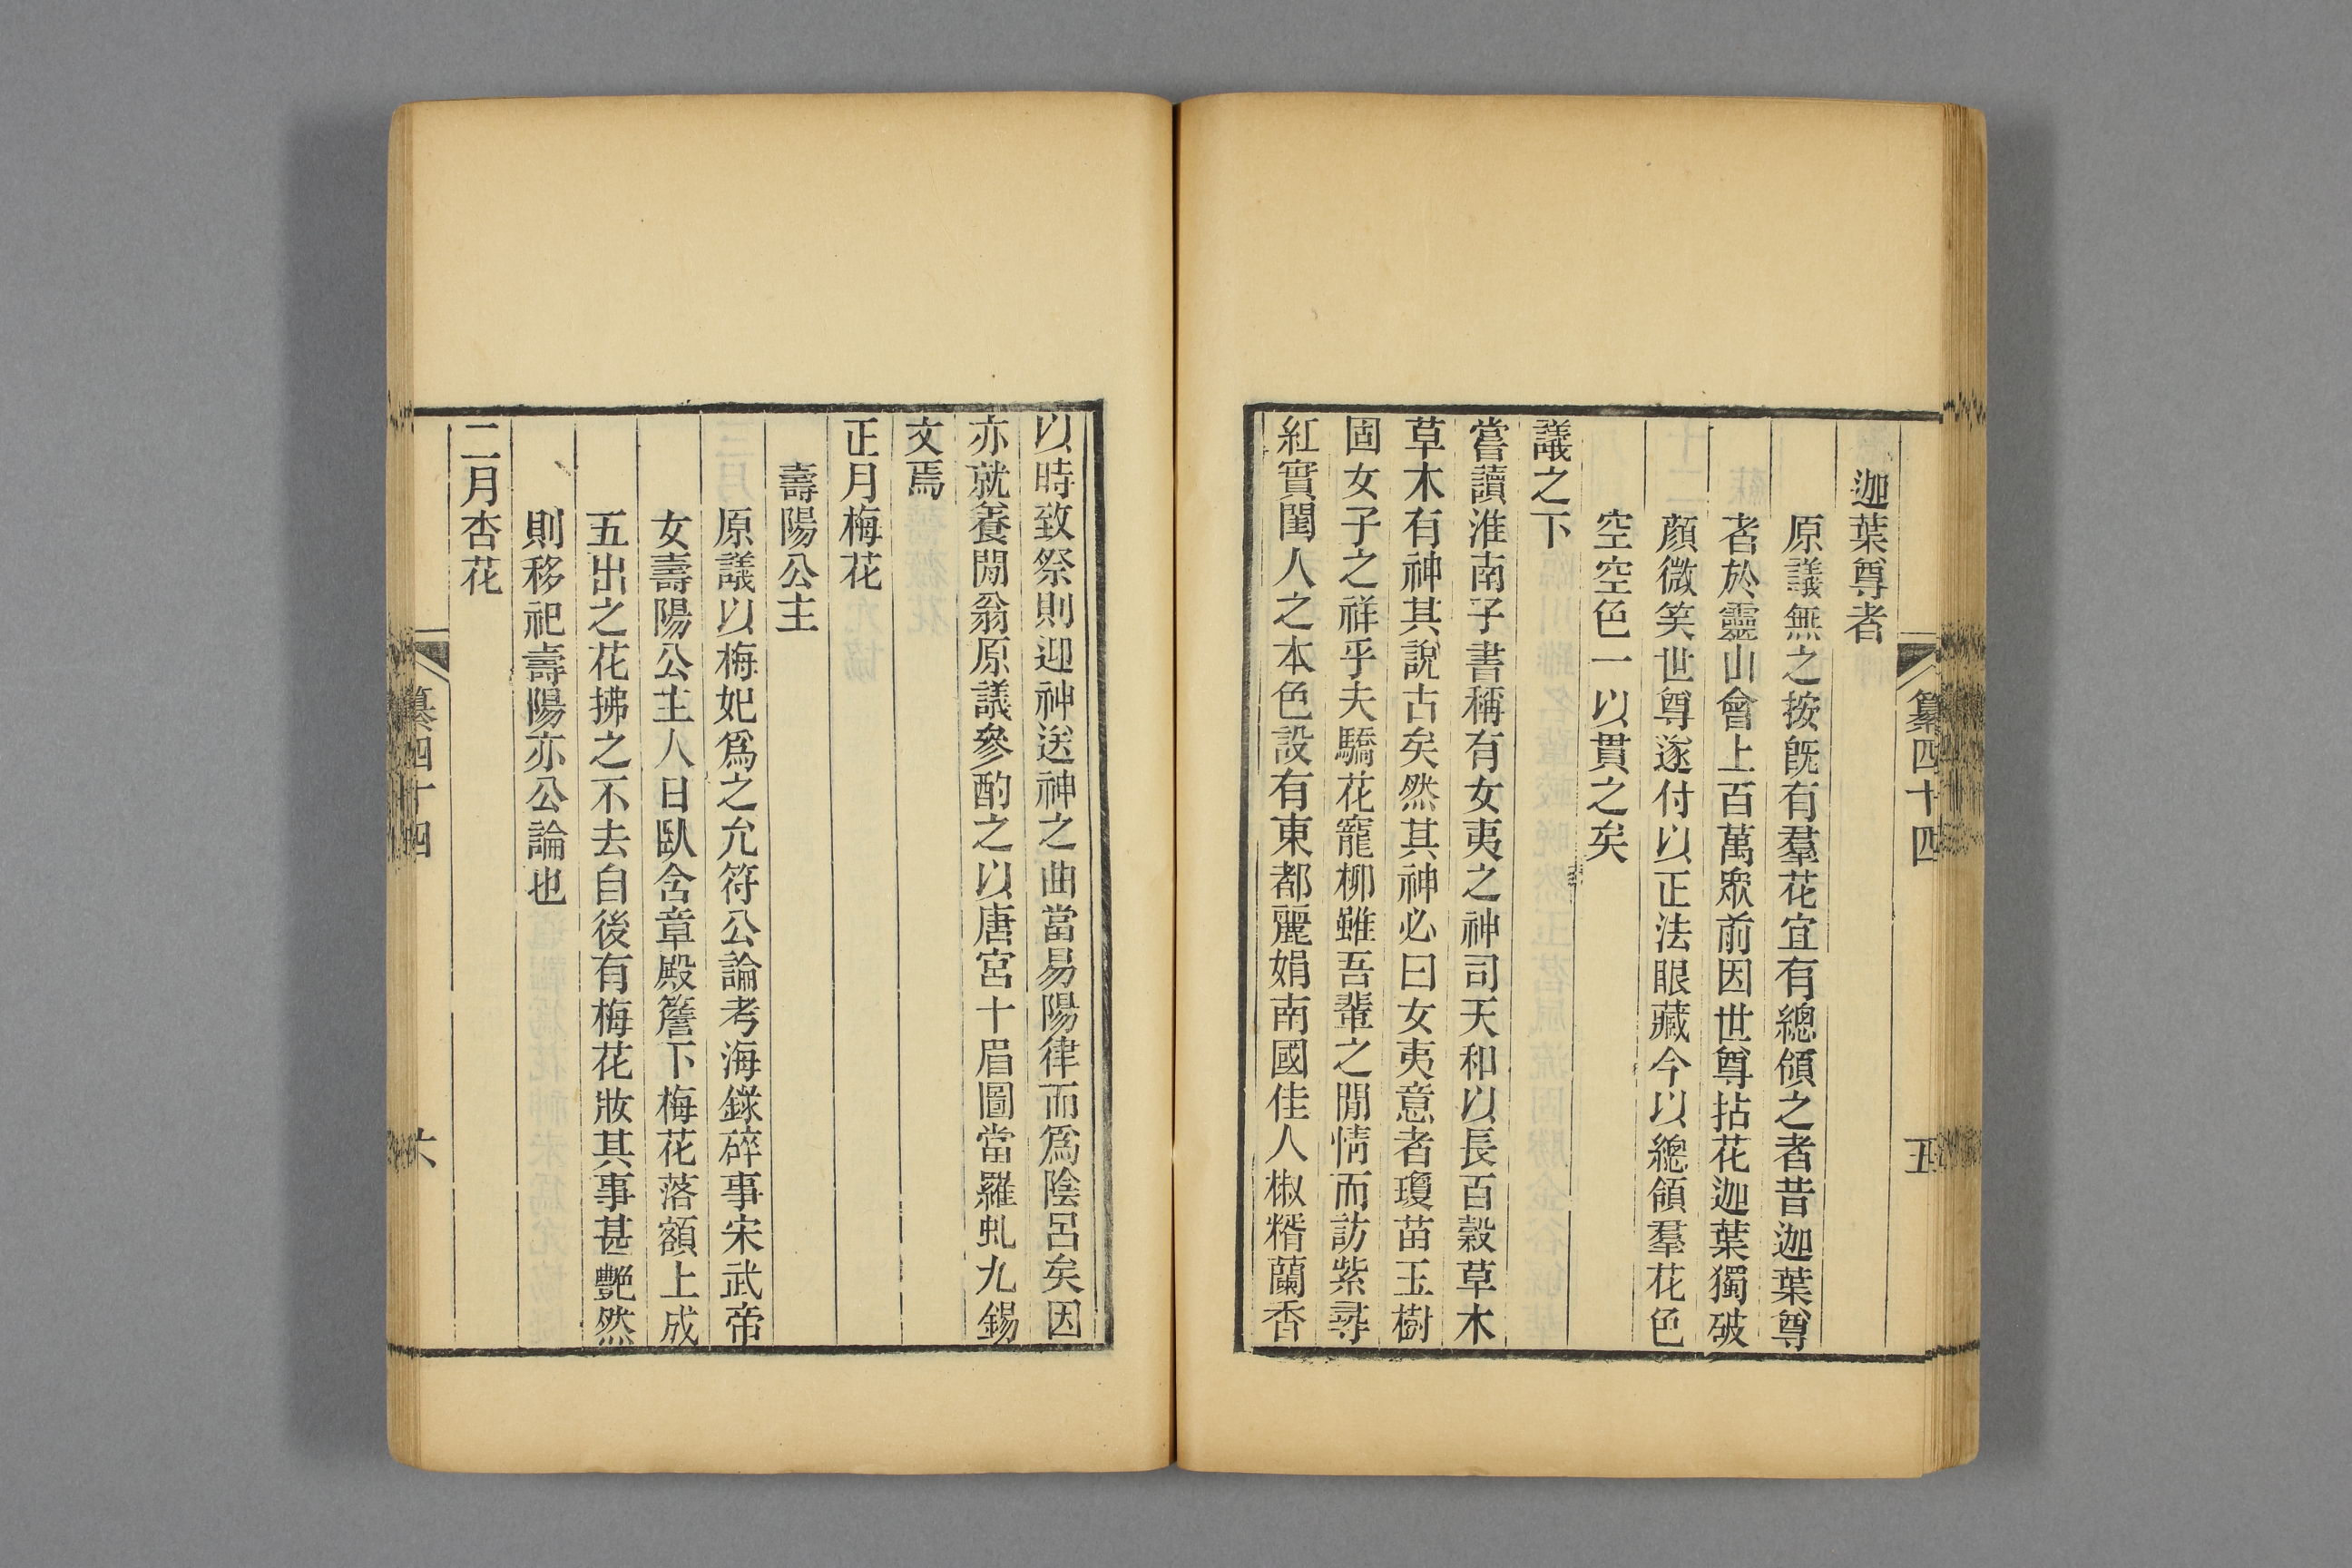 纂四十四
五
迦葉尊者
原議無之按旣有羣花宜有總領之者昔迦葉尊
者於靈山會上百萬眾前因世尊拈花迦葉獨破
顏微笑世尊遂付以正法眼藏今以總領羣花色
空空色一以貫之矣
議之下
嘗讀淮南子書稱有女夷之神司天和以長百穀草木
草木有神其說古矣然其神必曰女夷意者瓊苗玉樹
固女子之祥乎夫驕花寵柳雖吾輩之閒情而訪紫尋
紅實閨人之本色設有東都麗娟南國佳人椒糈蘭香
以時致祭則迎神送神之曲當易陽律而爲陰呂矣因
亦就養閒翁原議參酌之以唐宮十眉圖當羅虬九錫
文焉
正月梅花
壽陽公主
原議以梅妃爲之允符公論考海錄碎事宋武帝
女壽陽公主人日臥含章殿簷下梅花落額上成
五出之花拂之不去自後有梅花妝其事甚艷然
則移祀壽陽亦公論也
二月杏花
纂四十四
六